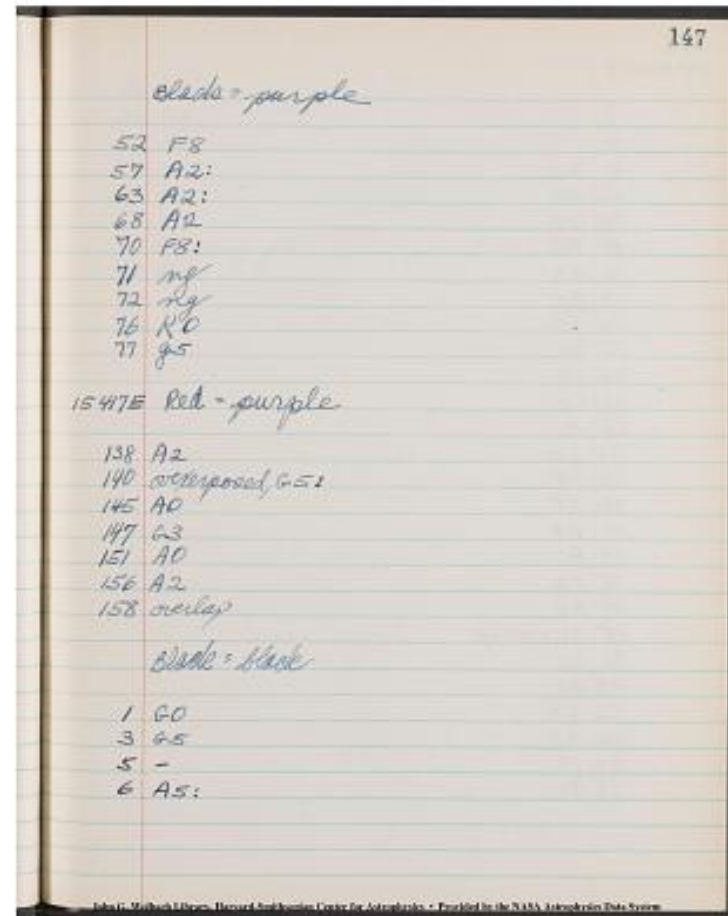 147
Black = purple
52 F8
57 A2:
63 A2:
68 A2
70 F8:
71 ng
72 ng
76 K0
77 g5
15417E Red = purple
138 A2
140 overexposed, G5:
145 A0
147 G3
151 A0
156 A2
158 overlap
Black = black
1 G0
3 G5
5 -
6 A5:
John G. Wolbach Library, Harvard-Smithsonian Center for Astrophysics • Provided by the NASA Astrophysics Data System